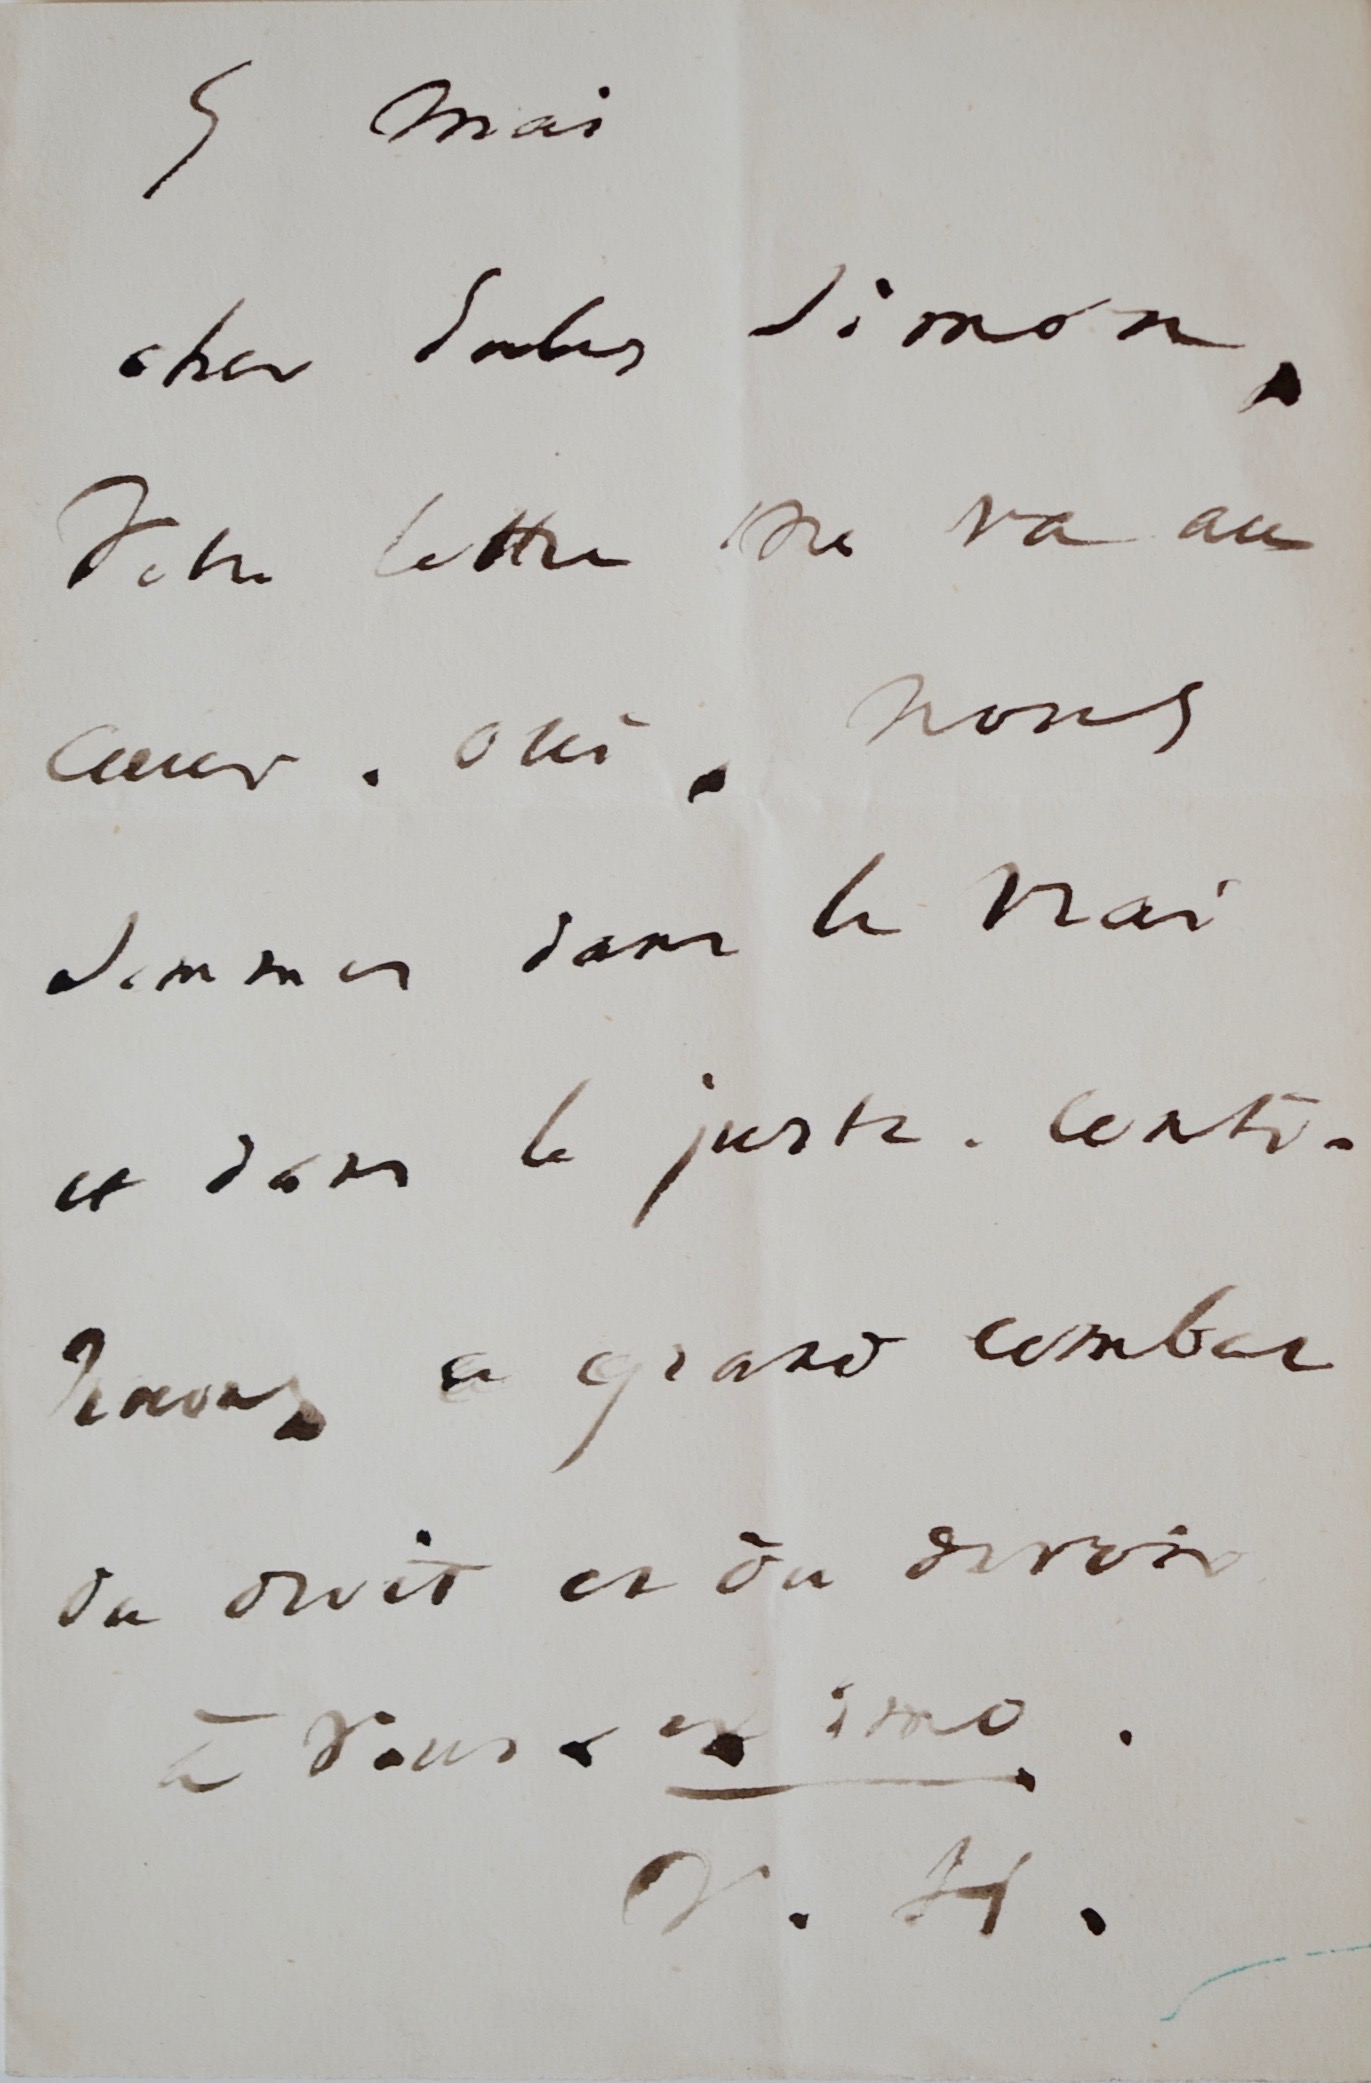 5 mai
cher Jules Simon,
Votre lettre me va au
cœur. oui, nous
sommes dans le vrai
et dans le juste. Conti-
nuons, ce grand combat
du droit et du devoir
à vous. ex imo.
V. H.